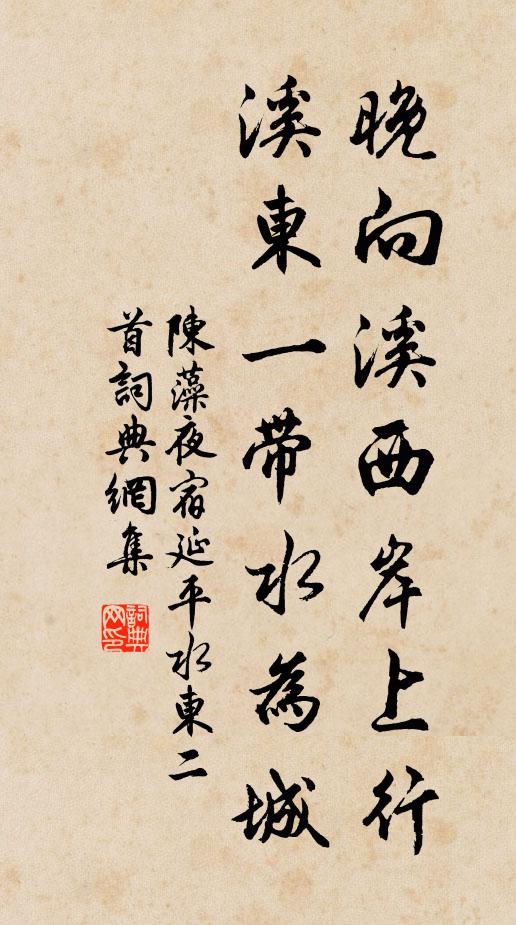 晚向溪西岸上行
溪東一帶水為城
陳藻夜宿延平水東二
首詞典網集
詞典
網印